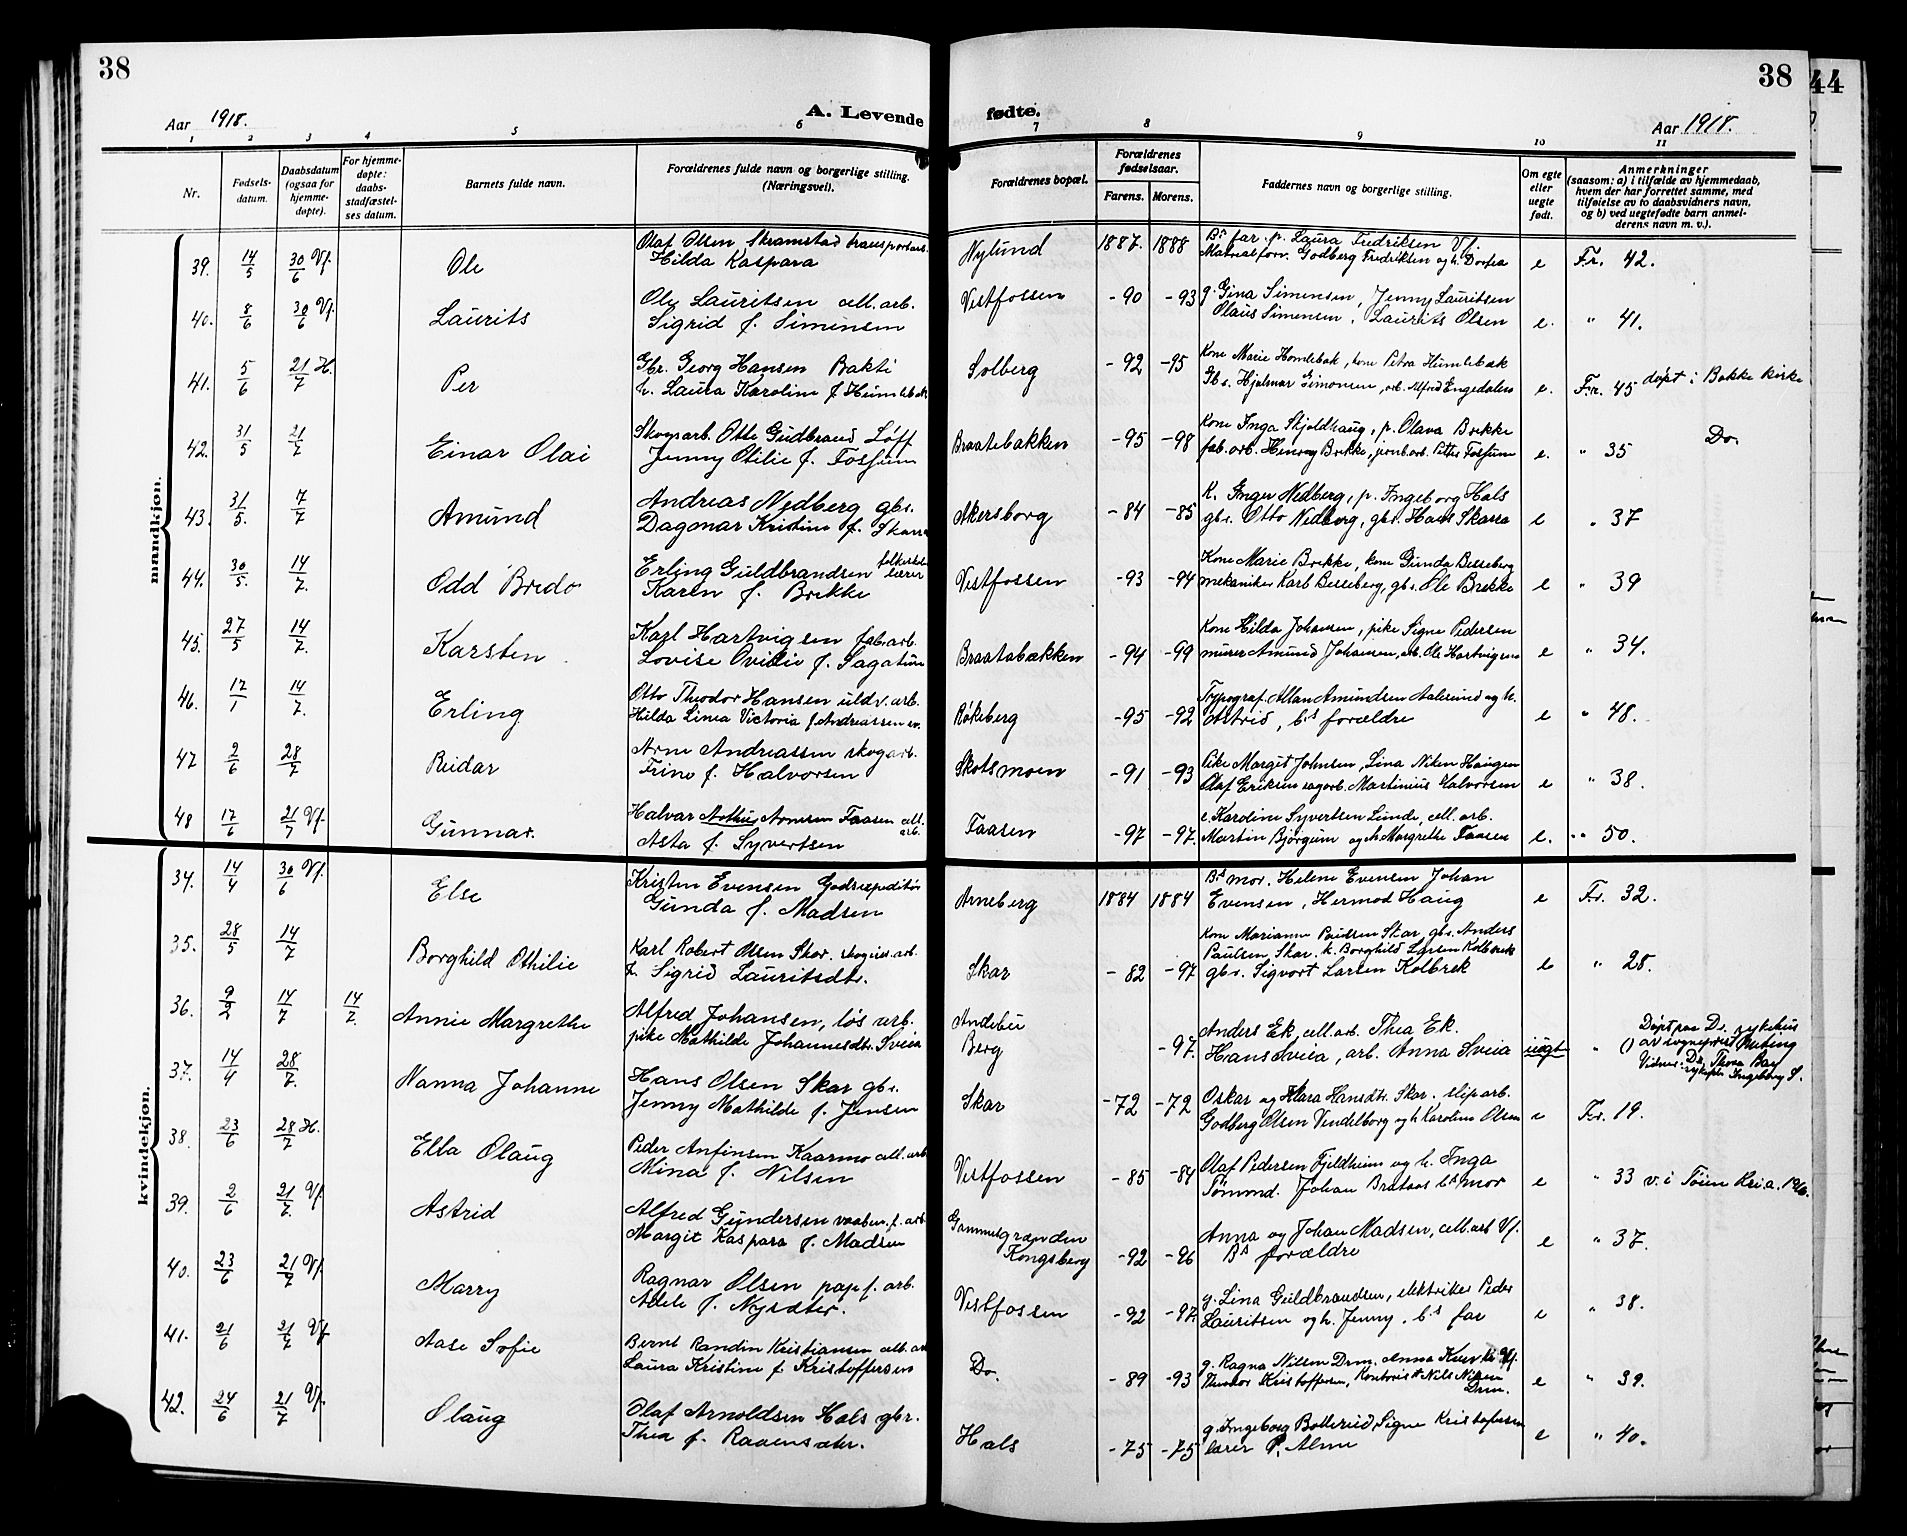 38
38
44
Aar 1918.
A. Levende fødte.
Aar 1918.
1 2 3 4 5 6 7 8 9 10 11
Nr.
Fødsels-
datum.
Daabsdatum
(ogsaa for
hjemme-
døpte).
For hjemme-
døpte:
daabs-
stadfæstel-
ses datum.
Barnets fulde navn.
Forældrenes fulde navn og borgerlige stilling.
(Næringsvei).
Forældrenes bopæl.
Forældrenes
fødselsaar.
Farens. Morens.
Faddernes navn og borgerlige stilling.
Om egte
eller
uegte
født.
Anmerkninger
(saasom: a) i tilfælde av hjemmedaab,
hvem der har forrettet samme, med
tilføielse av to daabsvidners navn,
og b) ved uegtefødte barn anmel-
derens navn m. v.).
mandkjøn.
39. 14/5 30/6 Vf. Ole Olaf Olsen Skramstad transportarb. Nylund 1887. 1888 Bs far. p. Laura Fredriksen Vf.
Hilda Kaspara Matrialforv. Godberg Fredriksen og h. Dortea e Fr. 42.
40. 8/6 30/6 Vf. Laurits Ole Lauritsen cell. arb. Vestfossen -90 -93 g. Gina Simensen, Jenny Lauritsen
Sigrid f. Simensen Olaus Simensen, Laurits Olsen e. " 41.
41. 5/6 21/7 H. Per Gbr. Georg Hansen Bakti Solberg -92 -95 Kone Marie Homlebæk, kone Petra Humlebæk
h. Laura Karoline f. Humlebæk Gbs. Hjalmar Simonsen, arb. Alfred Engedalen e. Fr. 45 døpt i Bakke kirke
42. 31/5 21/7 Einar Olai Skogsarb. Otto Gudbrand Løff Braatebakken -95 -98 Kone Inga Skjeldhaug, p. Olava Brekke
Jenny Otilie f. Fossum fab. arb. Henray Brekke, jernb. arb. Petter Fossum e. " 35 Do.
43. 31/5. 7/7 Amund Andreas Nedberg gbs. Akersborg -84 -85 K. Inger Nedberg, p. Ingeborg Hals
Dagmar Kristine f. Skarra gbs. Otto Nedberg, gbs. Hans Skarra e " 37
44. 30/5. 14/7. Odd Bredo Erling Guldbrandsen folkeskolelærer Vestfossen -93 -94 Kone Marie Brekke, kone Gunda Besseberg
Karen f. Brekke mekaniker Karl Besseberg, gbs. Ole Brekke e " 39
45. 27/5 14/7. Karsten Karl Hartvigsen fab. arb. Braatabakken -94 -99 Kone Hilda Johansen, pike Signe Pedersen
Lovise Ovidie f. Sagatun murer Amund Johansen, arb. Ole Hartvigsen e " 34.
46. 17/1 14/7. Erling Otto Theodor Hansen uldv. arb. Røkeberg -95 -92 Typograf. Allan Amundsen Aalesund og h.
Hilda Linea Victoria f. Andreassen Astrid, bs forældre e " 48.
47 2/6 28/7 Reidar Arne Andreassen skogarb. Skotsmoen -91 -93 Pike Margit Johnsen, Lina Haugen
Trine f. Halvorsen Olaf Eriksen sagarb. Martinius Halvorsen e " 38.
48 17/6 21/7 Vf. Gunnar. Halvar Arthur Arnesen Faasen cell. arb. Faasen -97 -97. e. Karoline Syvertsen Lunde, cell. arb.
Asta f. Syvertsen Martin Bjørgum og h. Margrethe Faasen e. " 50.
kvindekjøn.
34. 14/4 30/6 Vf. Else Kristen Evensen Godsexpeditør Arneberg 1884 1884 Bs mor. Helene Evensen Johan
Gunda f. Madsen Evensen, Hermod Haug e Fr. 32.
35. 28/5 14/7 Borghild Othilie Karl Robert Olsen Skar. skogsarb. Skar -82 -97 Kone Marianne Paulsen Skar, gbs. Anders
h. Sigrid Lauritsdtr. Paulsen Skar. k. Borghild Larsen Kolbræk
gbs. Sigvort Larsen Kolbrek e " 28.
36. 9/2 14/7 14/7. Annie Margrethe Alfred Johansen, løs arb. Andebu
pike Mathilde Johannesdtr. Sveia Berg -97. Anders Ek, cell. arb. Thea Ek.
Hans Sveia, arb. Anna Sveia uegt " () Døpt paa Dr. sykehus
av sogneprest Meting
Vidner: Dr. Thora Bay
sykepl. Ingeborg S.
37. 14/4 28/7. Nanna Johanne Hans Olsen Skar gbs. Skar -72 -72 Oskar og Klara Hansdtr. Skar. slip arb.
Jenny Mathilde f. Jensen Godberg Olsen Vendelborg og h. Karoline Olsen e Fr. 19.
38. 23/6 28/7 H. Ella Olaug Peder Anfinsen Kaarmo cell. arb Vestfossen -85 -84 Olaf Pedersen Fjeldheim og h. Inga
Mina f. Nilsen Tømmd. Johan Brataas bs mor e " 33 v. i Tøien Kria.
39. 2/6 21/7. Vf. Astrid Alfred Gundersen vaaben. f. arb Gammelgrænden -92 -96 Anna og Johan Madsen, cell. arb Vf.
Margit Kaspara f. Madsen Kongsberg Bs forældre e " 37.
40. 23/6 21/7 Vf. Marry Ragnar Olsen pap f. arb. Vestfossen -92 -97 g. Lina Guldbrandsen, elektriker Peder
Adele f. Nysæter. Lauritsen og h. Jenny. bs far e " 38.
41. 21/6 21/7 Vf Aase Sofie Bernt Randin Kristiansen cell. arb Do. -89 -93 g. Ragna Nilsen Drm. Anna Vf.
Laura Kristine f. Kristoffersen Theodor Kristoffersen, Kontorist Nils Nilsen Drm. e " 39.
42. 24/6 21/7 Vf. Olaug Olaf Arnoldsen Hals gbr. Hals -75 -75 g. Ingeborg Bollerud, Signe Kristofersen
Thea f. Raaensæter. lærer P. Alme e " 40.